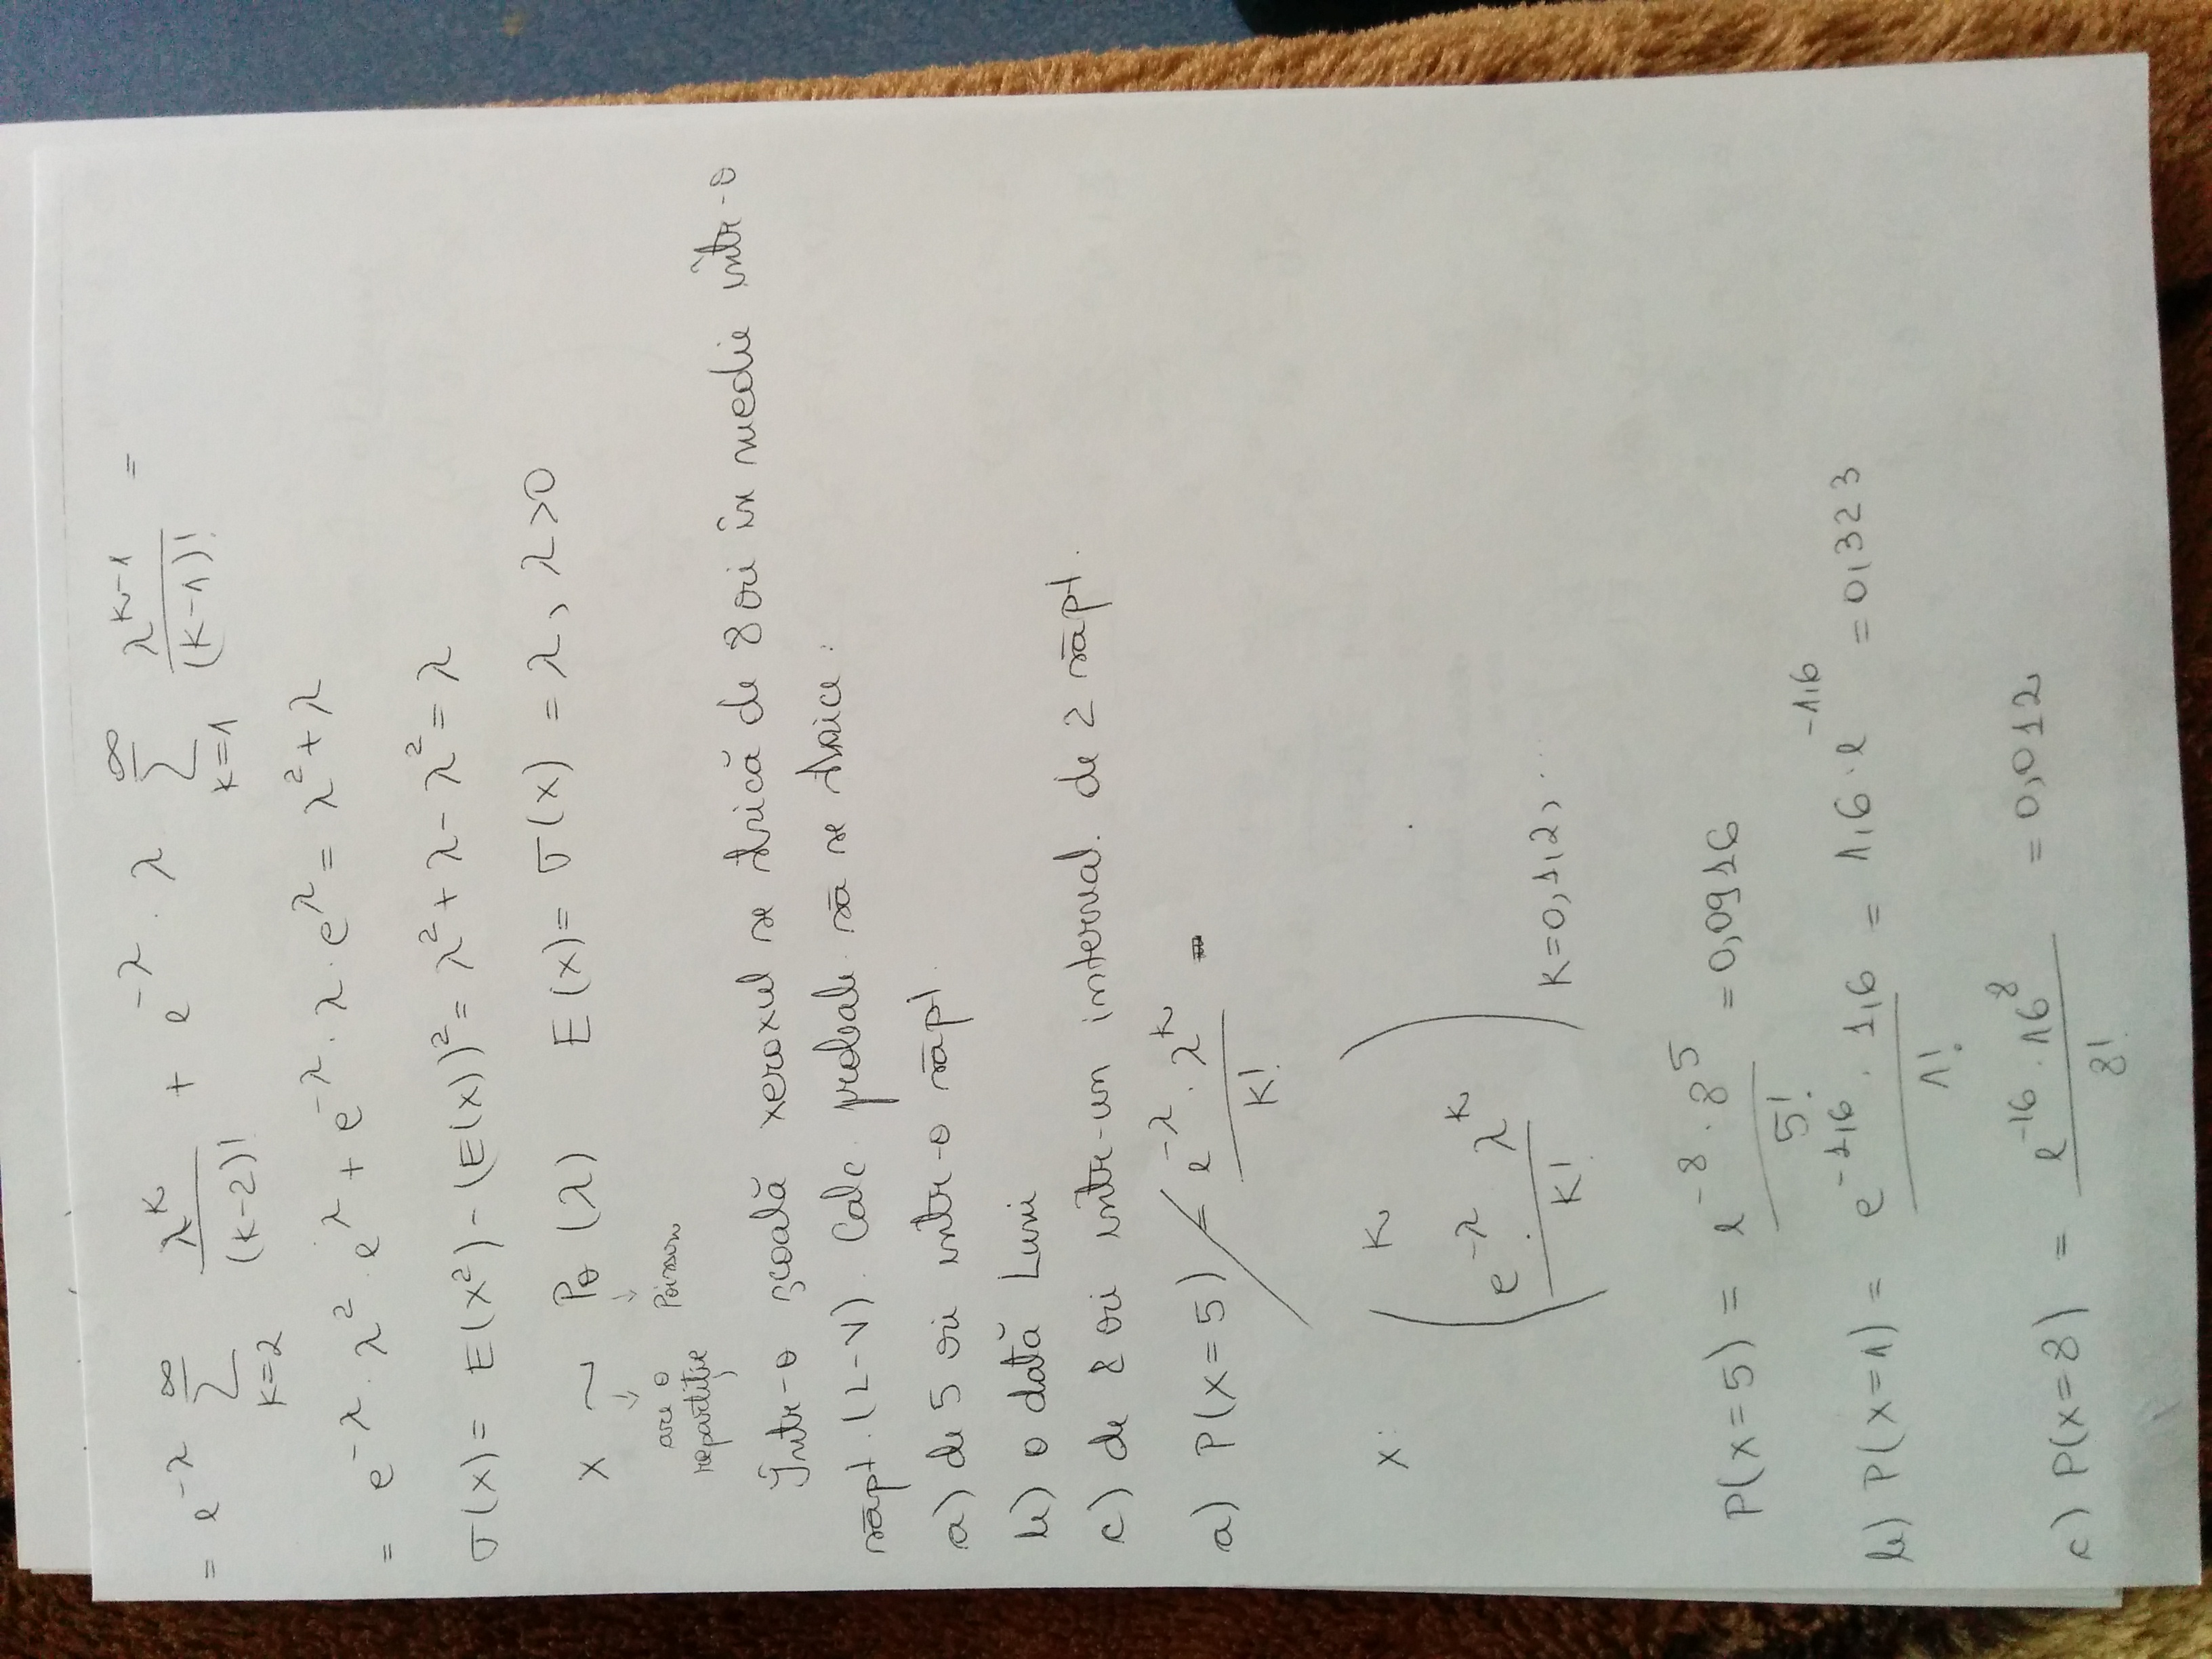 = e^{-λ} ∑_{k=2}^{∞} λ^k/(k-2)! + e^{-λ} · λ ∑_{k=1}^{∞} λ^{k-1}/(k-1)! =
= e^{-λ} · λ^2 · e^λ + e^{-λ} · λ · e^λ = λ^2 + λ
σ(x) = E(x^2) - (E(x))^2 = λ^2 + λ - λ^2 = λ
x ~ Po (λ) E(x) = σ(x) = λ, λ>0
are o Poisson
repartiție
Într-o școală xeroxul se strică de 8 ori în medie într-o
săpt. (L-V). Calc. probab. să se strice:
a) de 5 ori într-o săpt.
b) o dată Luni
c) de 8 ori într-un interval. de 2 săpt.
a) P(x=5) = e^{-λ} · λ^k / k!
x: ( k
e^{-λ} · λ^k / k! ) k=0,1,2, ...
P(x=5) = e^{-8} · 8^5 / 5! = 0,0916
b) P(x=1) = e^{-1,6} · 1,6 / 1! = 1,6 · e^{-1,6} = 0,323
c) P(x=8) = e^{-16} · 16^8 / 8! = 0,012